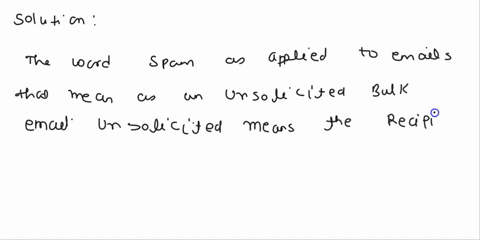 Solution:
The word Spam as applied to emails
that mean as an Unsolicited Bulk
email Unsolicited means the Recipi